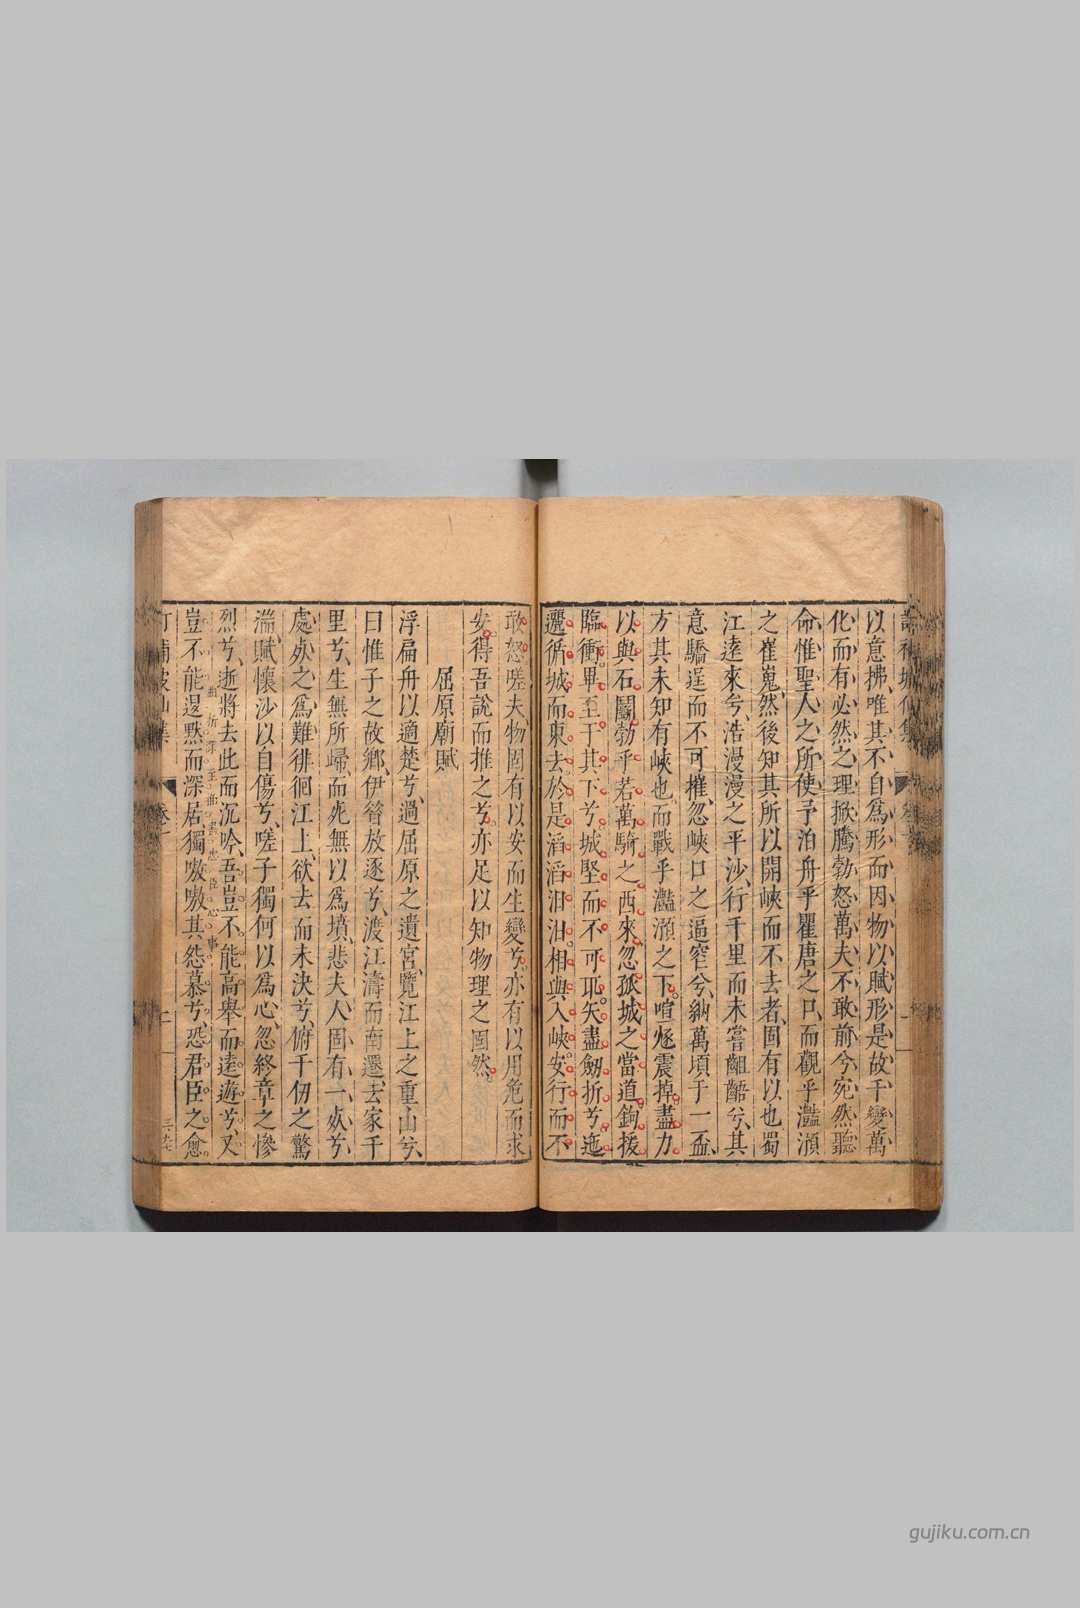 以意拂唯其不自爲形而因物以賦形是故千變萬
化而有必然之理掀騰勃怒萬夫不敢前兮宛然聽
命惟聖人之所使予泊舟乎瞿唐之口而觀乎灩澦
之崔嵬然後知其所以開峽而不去者固有以也蜀
江遠來兮浩漫漫之平沙行千里而未嘗齟齬兮其
意驕逞而不可摧忽峽口之逼窄兮納萬頃于一盃
方其未知有峽也而戰乎灩澦之下喧豗震掉盡力
以與石鬭勃乎若萬騎之西來忽孤城之當道鉤援
臨衝畢至于其下兮城堅而不可取矢盡劒折兮迤
邐循城而東去於是滔滔汩汩相與入峽安行而不
敢怒嗟夫物固有以安而生變兮亦有以用危而求
安得吾說而推之兮亦足以知物理之固然
屈原廟賦
浮扁舟以適楚兮過屈原之遺宮覽江上之重山兮
曰惟子之故鄉伊昝放逐兮渡江濤而南遷去家千
里兮生無所歸而死無以爲墳悲夫人固有一死兮
處死之爲難徘徊江上欲去而未決兮俯千仞之驚
湍賦懷沙以自傷兮嗟子獨何以爲心忽終章之慘
烈兮逝將去此而沉吟吾豈不能高舉而遠遊兮又
曲折
至曲盡忠臣心事
豈不能退默而深居獨嗷嗷其怨慕兮恐君臣之愈
卷一
二
gujiku.com.cn